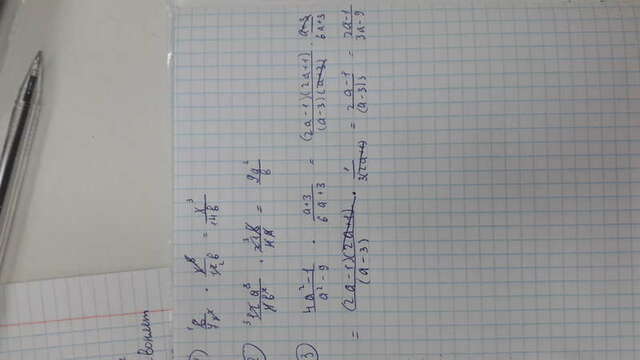 воляет
1) b/7x² · x⁵/12b = x³/14b
2) a³/b² · b = 9a²/b
3) 4a²-1/a²-9 · a+3/6a+3 = (2a-1)(2a+1)/(a-3)(a+3) · a+3/6a+3
= (2a-1)(2a+1)/(a-3) · 1/3(2a+1) = 2a-1/(a-3)3 = 2a-1/3a-9